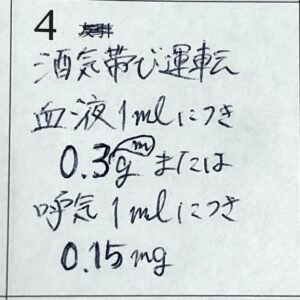 4
酒気帯び運転
血液1mlにつき
0.3mgまたは
呼気1mlにつき
0.15mg